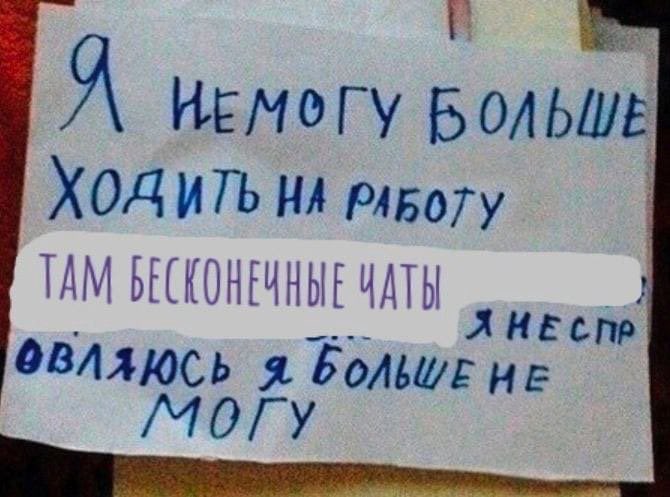 Я НЕМОГУ БОЛЬШЕ
ХОДИТЬ НА РАБОТУ
ТАМ БЕСКОНЕЧНЫЕ ЧАТЫ
Я НЕ СПР
ОВЛЯЮСЬ Я БОЛЬШЕ НЕ
МОГУ